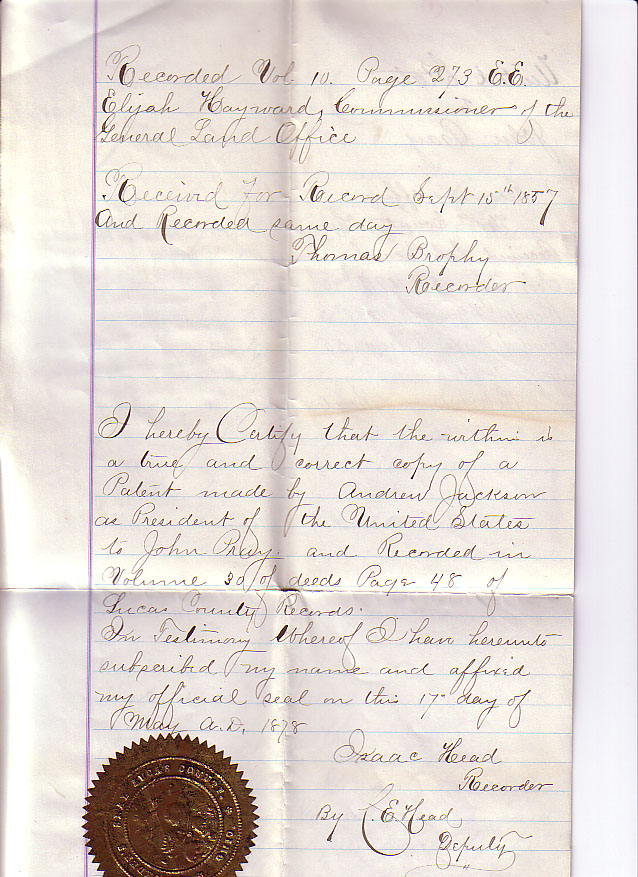 Recorded Vol. 10. Page 273 E.E.
Elijah Hayward, Commissioner of the
General Land Office
Received for Record Sept 15th 1857
and Recorded same day
Thomas Brophy
Recorder
I hereby Certify that the within is
a true and correct copy of a
Patent made by Andrew Jackson
as President of the United States
to John Pray. and Recorded in
Volume 30 of deeds Page 48 of
Lucas County Records.
In Testimony Whereof I have hereunto
subscribed my name and affixed
my official seal on this 17" day of
May A.D. 1878
Isaac Head
Recorder
By C. E. Head
Deputy
LUCAS COUNTY OHIO